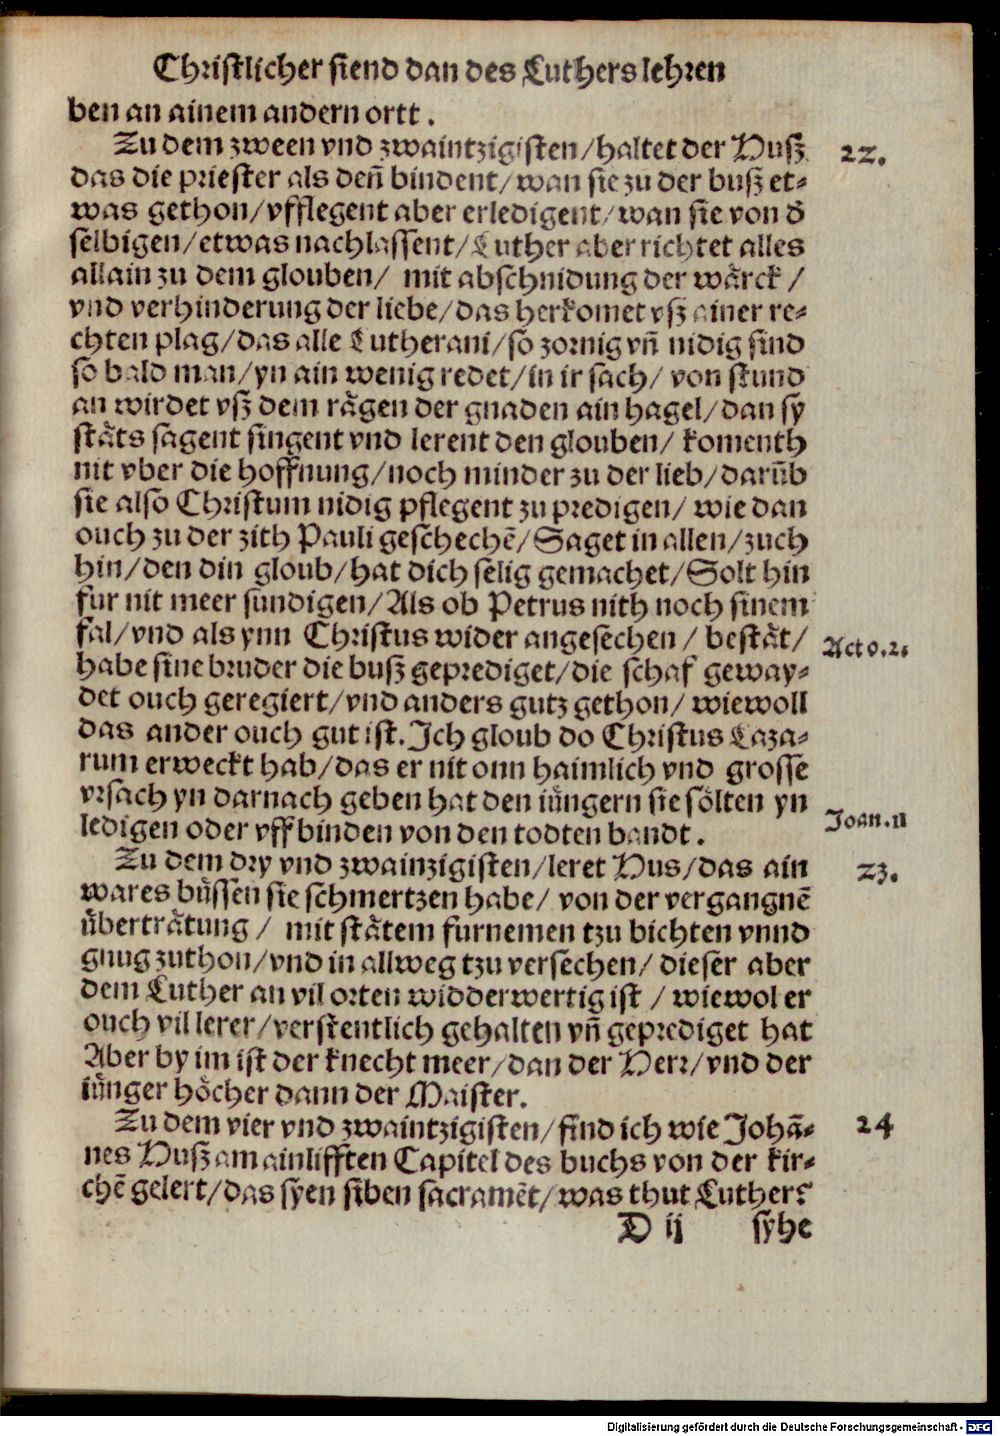 Christlicher siend dan des Luthers lehren
ben an ainem andern ortt.
Zu dem zween vnd zwaintzigisten/haltet der Husz 22.
das die priester als deñ bindent/wan sie zu der busz et⸗
was gethon/vfflegent aber erledigent/wan sie von d
selbigen/etwas nachlassent/Luther aber richtet alles
allain zu dem glouben/ mit abschnidung der waͤrck /
vnd verhinderung der liebe/das herkomet vsz ainer re⸗
chten plag/das alle Lutherani/so zornig vñ nidig sind
so bald man/yn ain wenig redet/in ir sach/ von stund
an wirdet vsz dem raͤgen der gnaden ain hagel/dan sy
staͤts sagent singent vnd lerent den glouben/ komenth
nit vber die hoffnung/noch minder zu der lieb/darūb
sie also Christum nidig pflegent zu predigen/ wie dan
ouch zu der zith Pauli geschechē/Saget in allen/zuch
hin/den din gloub/hat dich selig gemachet/Solt hin
fur nit meer sundigen/Als ob Petrus nith noch sinem
fal/vnd als ynn Christus wider angesechen / bestaͤt/ Acto.2.
habe sine bruder die busz geprediget/die schaf geway⸗
det ouch geregiert/vnd anders gutz gethon/ wiewoll
das ander ouch gut ist.Ich gloub do Christus Laza⸗
rum erweckt hab/das er nit onn haimlich vnd grosse
vrsach yn darnach geben hat den iuͤngern sie soͤlten yn Joan.11
ledigen oder vffbinden von den todten bandt.
Zu dem dry vnd zwainzigisten/leret Hus/das ain 23.
wares buͤssen sie schmertzen habe/ von der vergangnē
uͤbertraͤtung / mit staͤtem furnemen tzu bichten vnnd
gnug zuthon/vnd in allweg tzu versechen/ dieser aber
dem Luther an vil orten widderwertig ist / wiewol er
ouch vil lerer/verstentlich gehalten vñ geprediget hat
Aber by im ist der knecht meer/dan der Herr/vnd der
iuͤnger hoͤcher dann der Maister.
Zu dem vier vnd zwaintzigisten/find ich wie Johā⸗ 24
nes Husz am ainlifften Capitel des buchs von der kir⸗
chē gelert/das syen siben sacramēt/was thut Luther?
D ij syhe
Digitalisierung gefördert durch die Deutsche Forschungsgemeinschaft - DFG